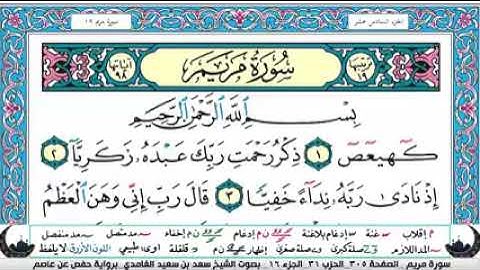 الجزء السادس عشر سورة مريم ١٩
ترتيبها ١٩ سُورَةُ مَرْيَم آياتها ٩٨
بِسْمِ ٱللَّهِ ٱلرَّحْمَٰنِ ٱلرَّحِيمِ
كٓهيعٓصٓ ١ ذِكْرُ رَحْمَتِ رَبِّكَ عَبْدَهُۥ زَكَرِيَّآ ٢
إِذْ نَادَىٰ رَبَّهُۥ نِدَآءً خَفِيًّا ٣ قَالَ رَبِّ إِنِّى وَهَنَ ٱلْعَظْمُ
م إقلاب غنة إدغام بلاغنة ن م إدغام ن م إخفاء مد متصل مد منفصل
المد اللازم صلة كبرى صلة صغرى إظهار ن م قلقلة اوى طبيعي اللون الأزرق لا يلفظ
سورة مريم .. الصفحة ٣٠٥ الحزب ٣١ الجزء ١٦ .. بصوت الشيخ سعد بن سعيد الغامدي.. برواية حفص عن عاصم